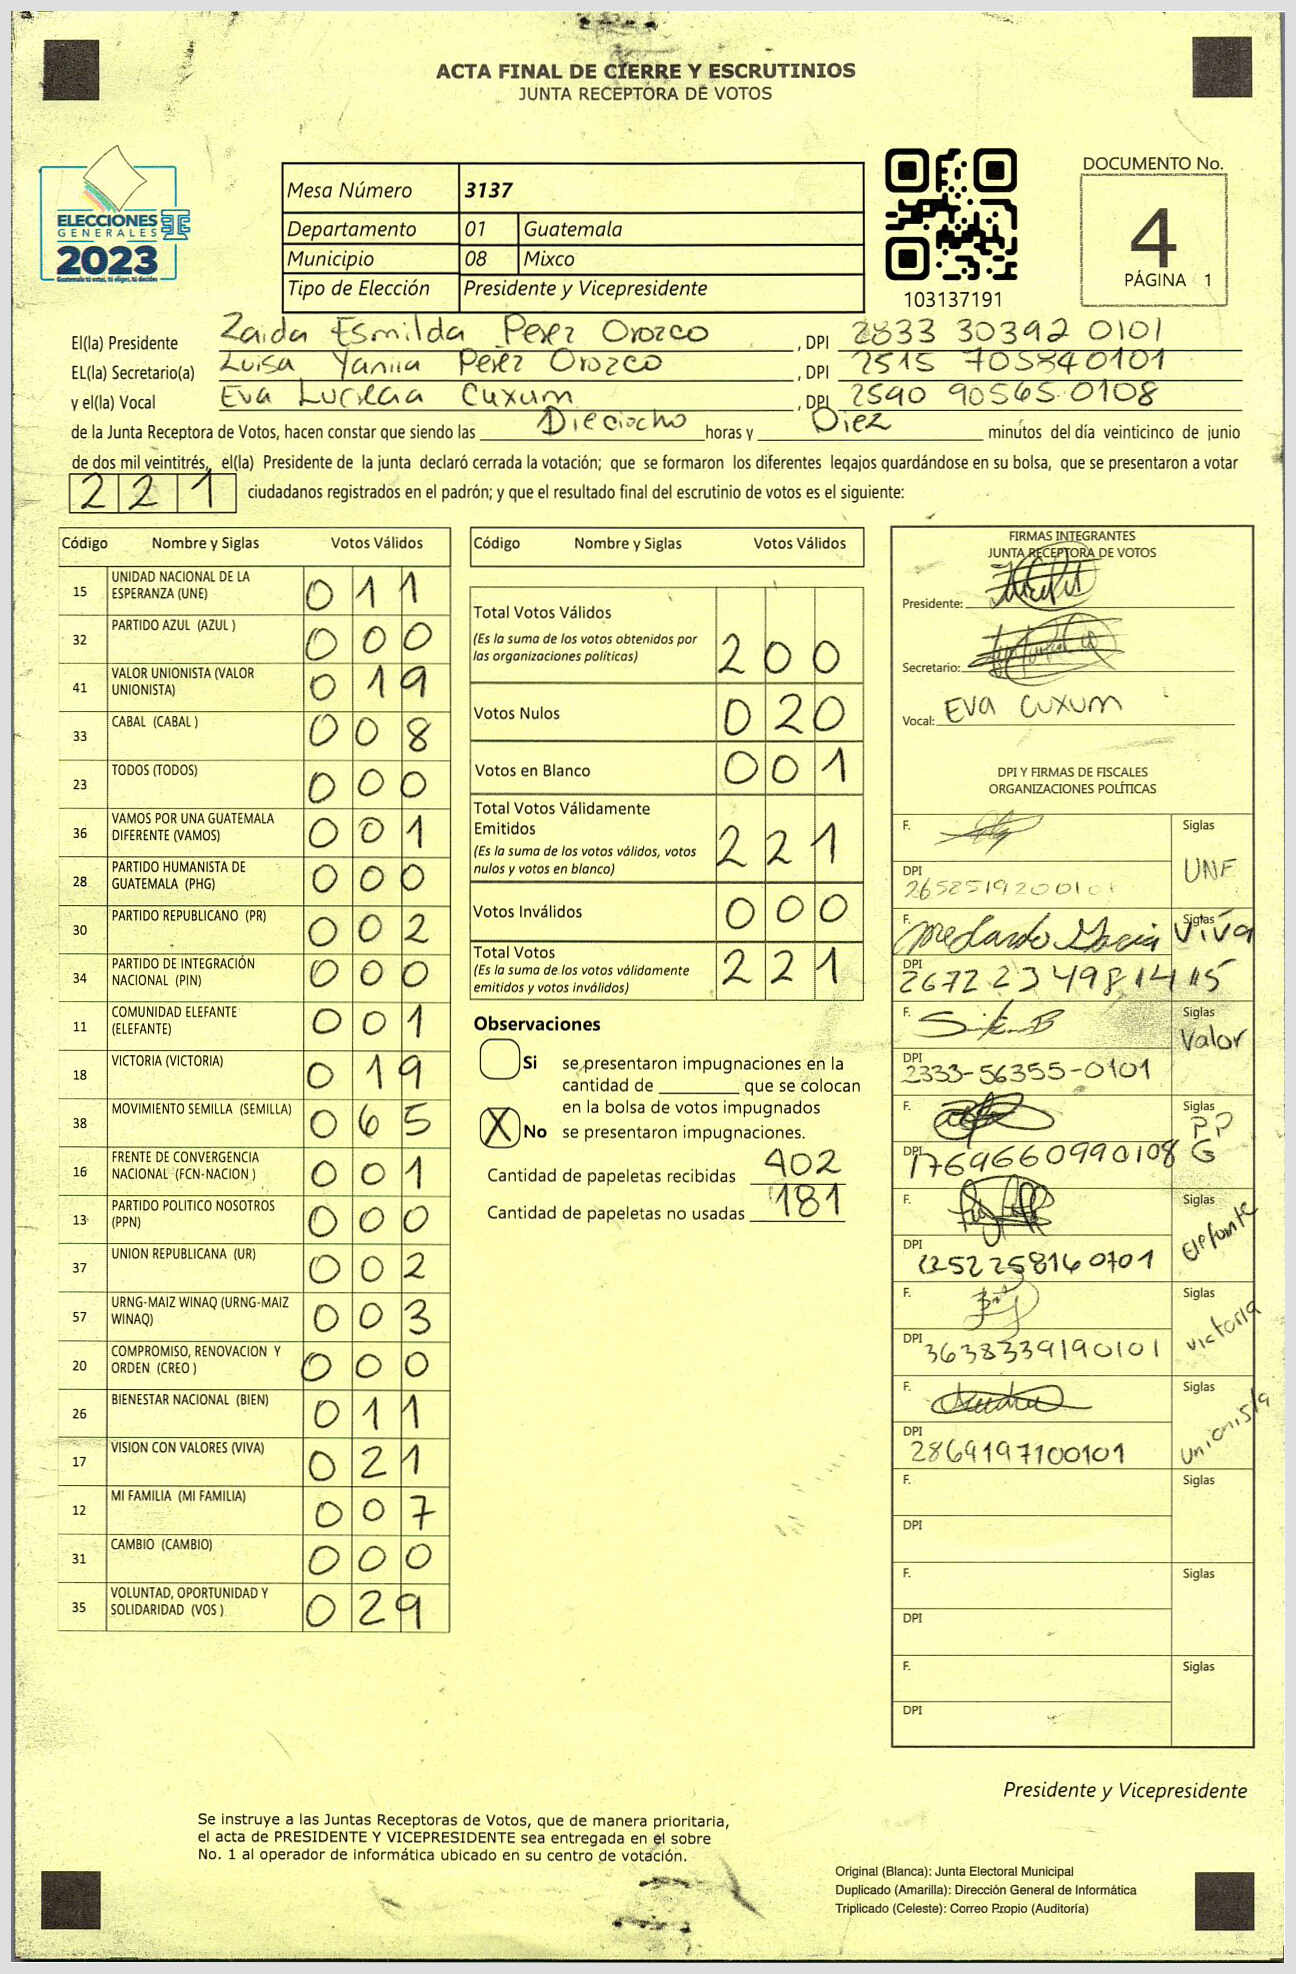 ACTA FINAL DE CIERRE Y ESCRUTINIOS
JUNTA RECEPTORA DE VOTOS
ELECCIONES
GENERALES
2023
Guatemala tú votas, tú eliges, tú decides
Mesa Número 3137
Departamento 01 Guatemala
Municipio 08 Mixco
Tipo de Elección Presidente y Vicepresidente
103137191
DOCUMENTO No.
4
PÁGINA 1
El(la) Presidente Zaida Esmilda Perez Orozco , DPI 2833 30392 0101
EL(la) Secretario(a) Luisa Perez Orozco , DPI 2515 705840101
y el(la) Vocal Eva Cuxum , DPI 2590 90565 0108
de la Junta Receptora de Votos, hacen constar que siendo las Dieciocho horas y Diez minutos del día veinticinco de junio
de dos mil veintitrés, el(la) Presidente de la junta declaró cerrada la votación; que se formaron los diferentes legajos guardándose en su bolsa, que se presentaron a votar
221 ciudadanos registrados en el padrón; y que el resultado final del escrutinio de votos es el siguiente:
Código Nombre y Siglas Votos Válidos
15 UNIDAD NACIONAL DE LA ESPERANZA (UNE) 011
32 PARTIDO AZUL (AZUL ) 000
41 VALOR UNIONISTA (VALOR UNIONISTA) 019
33 CABAL (CABAL ) 008
23 TODOS (TODOS) 000
36 VAMOS POR UNA GUATEMALA DIFERENTE (VAMOS) 001
28 PARTIDO HUMANISTA DE GUATEMALA (PHG) 000
30 PARTIDO REPUBLICANO (PR) 002
34 PARTIDO DE INTEGRACIÓN NACIONAL (PIN) 000
11 COMUNIDAD ELEFANTE (ELEFANTE) 001
18 VICTORIA (VICTORIA) 019
38 MOVIMIENTO SEMILLA (SEMILLA) 065
16 FRENTE DE CONVERGENCIA NACIONAL (FCN-NACION ) 001
13 PARTIDO POLITICO NOSOTROS (PPN) 000
37 UNION REPUBLICANA (UR) 002
57 URNG-MAIZ WINAQ (URNG-MAIZ WINAQ) 003
20 COMPROMISO, RENOVACION Y ORDEN (CREO ) 000
26 BIENESTAR NACIONAL (BIEN) 011
17 VISION CON VALORES (VIVA) 021
12 MI FAMILIA (MI FAMILIA) 007
31 CAMBIO (CAMBIO) 000
35 VOLUNTAD, OPORTUNIDAD Y SOLIDARIDAD (VOS ) 029
Código Nombre y Siglas Votos Válidos
Total Votos Válidos 200
(Es la suma de los votos obtenidos por
las organizaciones políticas)
Votos Nulos 020
Votos en Blanco 001
Total Votos Válidamente
Emitidos 221
(Es la suma de los votos válidos, votos
nulos y votos en blanco)
Votos Inválidos 000
Total Votos 221
(Es la suma de los votos válidamente
emitidos y votos inválidos)
Observaciones
Si se presentaron impugnaciones en la
cantidad de ________ que se colocan
en la bolsa de votos impugnados
X No se presentaron impugnaciones.
Cantidad de papeletas recibidas 402
Cantidad de papeletas no usadas 181
FIRMAS INTEGRANTES
JUNTA RECEPTORA DE VOTOS
Presidente:
Secretario:
Vocal: Eva Cuxum
DPI Y FIRMAS DE FISCALES
ORGANIZACIONES POLÍTICAS
F. Siglas
DPI UNE
F. Siglas Viva
DPI 2672 23498 14 115
F. Siglas
DPI 2333-56355-0101 Valor
F. Siglas PPG
DPI 1769660990108
F. Siglas
DPI 2252258160701 Elefante
F. Siglas
DPI 3638339190101 victoria
F. Siglas
DPI 2869197100101 unionista
F. Siglas
DPI
F. Siglas
DPI
F. Siglas
DPI
Presidente y Vicepresidente
Se instruye a las Juntas Receptoras de Votos, que de manera prioritaria,
el acta de PRESIDENTE Y VICEPRESIDENTE sea entregada en el sobre
No. 1 al operador de informática ubicado en su centro de votación.
Original (Blanca): Junta Electoral Municipal
Duplicado (Amarilla): Dirección General de Informática
Triplicado (Celeste): Correo Propio (Auditoría)